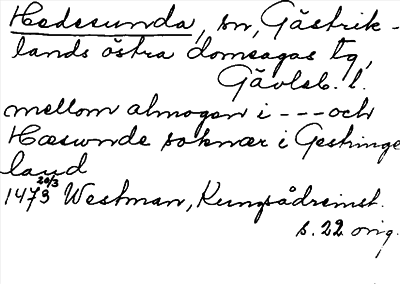 Hedesunda, sn, Gästrik-
lands östra domsagas tg,
Gävleb. l.
mellom almogen i --- och
Hæsunde soknær i Gestringe
land
20/3
1473 Westman, Kungsådreinst.
s. 22 orig.